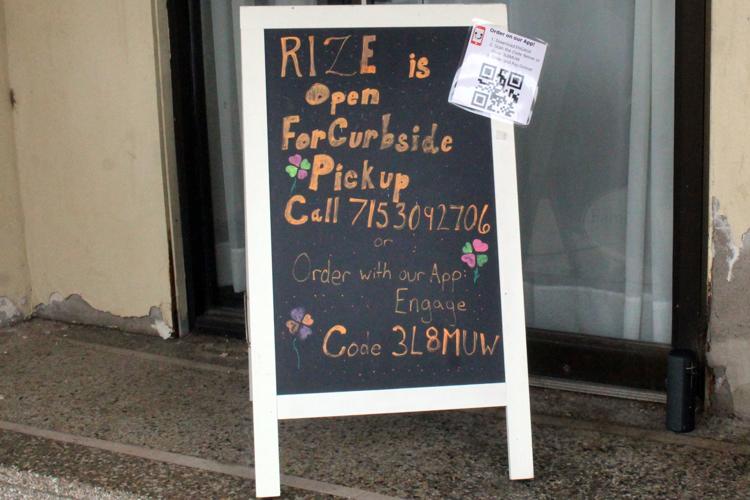 RIZE is
Open
For Curbside
Pickup
Call 7153092706
or
Order with our App:
Engage
Code 3L8MUW
Order on our App!